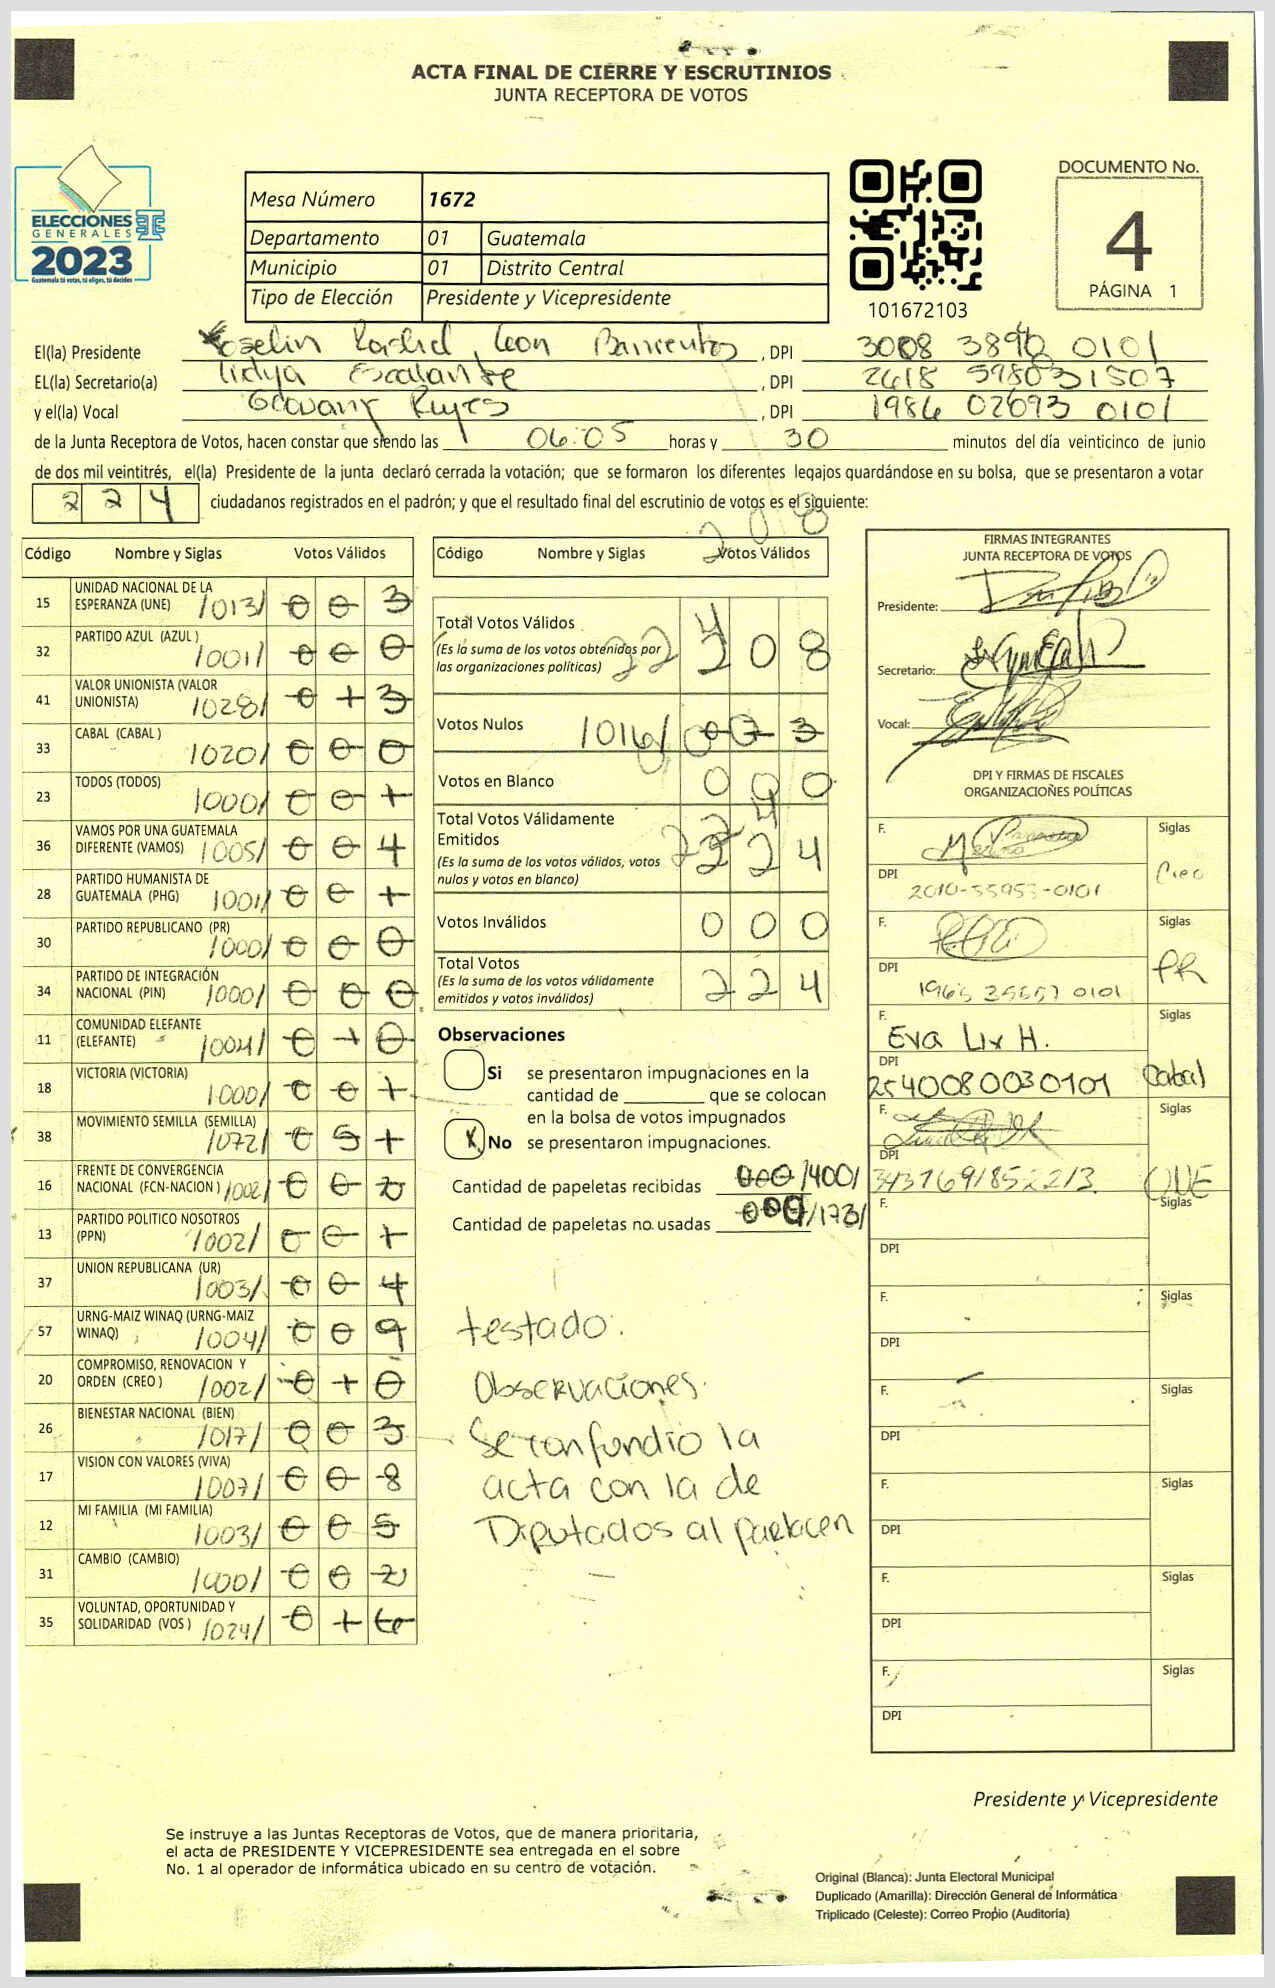 ACTA FINAL DE CIERRE Y ESCRUTINIOS
JUNTA RECEPTORA DE VOTOS
ELECCIONES
GENERALES
2023
Guatemala tú votas, tú eliges, tú decides
Mesa Número 1672
Departamento 01 Guatemala
Municipio 01 Distrito Central
Tipo de Elección Presidente y Vicepresidente
101672103
DOCUMENTO No.
4
PÁGINA 1
El(la) Presidente Leon Barrientos , DPI 3008 0101
EL(la) Secretario(a) Escalante , DPI 2618 598031507
y el(la) Vocal Geovany Reyes , DPI 1986 02693 0101
de la Junta Receptora de Votos, hacen constar que siendo las 06:05 horas y 30 minutos del día veinticinco de junio
de dos mil veintitrés, el(la) Presidente de la junta declaró cerrada la votación; que se formaron los diferentes legajos guardándose en su bolsa, que se presentaron a votar
224 ciudadanos registrados en el padrón; y que el resultado final del escrutinio de votos es el siguiente:
208
Código Nombre y Siglas Votos Válidos
15 UNIDAD NACIONAL DE LA ESPERANZA (UNE) /013/ 0 0 3
32 PARTIDO AZUL (AZUL ) /001/ 0 0 0
41 VALOR UNIONISTA (VALOR UNIONISTA) /028/ 0 + 3
33 CABAL (CABAL ) /020/ 0 0 0
23 TODOS (TODOS) /000/ 0 0 +
36 VAMOS POR UNA GUATEMALA DIFERENTE (VAMOS) /005/ 0 0 4
28 PARTIDO HUMANISTA DE GUATEMALA (PHG) /001/ 0 0 +
30 PARTIDO REPUBLICANO (PR) /000/ 0 0 0
34 PARTIDO DE INTEGRACIÓN NACIONAL (PIN) /000/ 0 0 0
11 COMUNIDAD ELEFANTE (ELEFANTE) /004/ 0 + 0
18 VICTORIA (VICTORIA) /000/ 0 0 +
38 MOVIMIENTO SEMILLA (SEMILLA) /072/ 0 5 +
16 FRENTE DE CONVERGENCIA NACIONAL (FCN-NACION ) /002/ 0 0 2
13 PARTIDO POLITICO NOSOTROS (PPN) /002/ 0 0 +
37 UNION REPUBLICANA (UR) /003/ 0 0 4
57 URNG-MAIZ WINAQ (URNG-MAIZ WINAQ) /004/ 0 0 9
20 COMPROMISO, RENOVACION Y ORDEN (CREO ) /002/ 0 + 0
26 BIENESTAR NACIONAL (BIEN) /017/ 0 0 3
17 VISION CON VALORES (VIVA) /007/ 0 0 8
12 MI FAMILIA (MI FAMILIA) /003/ 0 0 5
31 CAMBIO (CAMBIO) /000/ 0 0 2
35 VOLUNTAD, OPORTUNIDAD Y SOLIDARIDAD (VOS ) /024/ 0 +
Código Nombre y Siglas Votos Válidos
Total Votos Válidos
(Es la suma de los votos obtenidos por las organizaciones políticas) 2 0 8
Votos Nulos /016/ 0 7 3
Votos en Blanco 0 0 0
Total Votos Válidamente Emitidos
(Es la suma de los votos válidos, votos nulos y votos en blanco) 2 2 4
Votos Inválidos 0 0 0
Total Votos
(Es la suma de los votos válidamente emitidos y votos inválidos) 2 2 4
Observaciones
Si se presentaron impugnaciones en la
cantidad de ________ que se colocan
en la bolsa de votos impugnados
X No se presentaron impugnaciones.
Cantidad de papeletas recibidas 000 /400/
Cantidad de papeletas no usadas 000 /173/
testado:
Observaciones.
Se confundio la
acta con la de
Diputados al parlacen
FIRMAS INTEGRANTES
JUNTA RECEPTORA DE VOTOS
Presidente:
Secretario:
Vocal:
DPI Y FIRMAS DE FISCALES
ORGANIZACIONES POLÍTICAS
F. Siglas Creo
DPI 2010-35953-0101
F. Siglas PR
DPI 0101
F. Eva Lix H. Siglas Cabal
DPI 2540080030101
F. Siglas
DPI
F. Siglas
DPI
F. Siglas
DPI
F. Siglas
DPI
F. Siglas
DPI
F. Siglas
DPI
F. Siglas
DPI
Presidente y Vicepresidente
Se instruye a las Juntas Receptoras de Votos, que de manera prioritaria,
el acta de PRESIDENTE Y VICEPRESIDENTE sea entregada en el sobre
No. 1 al operador de informática ubicado en su centro de votación.
Original (Blanca): Junta Electoral Municipal
Duplicado (Amarilla): Dirección General de Informática
Triplicado (Celeste): Correo Propio (Auditoría)